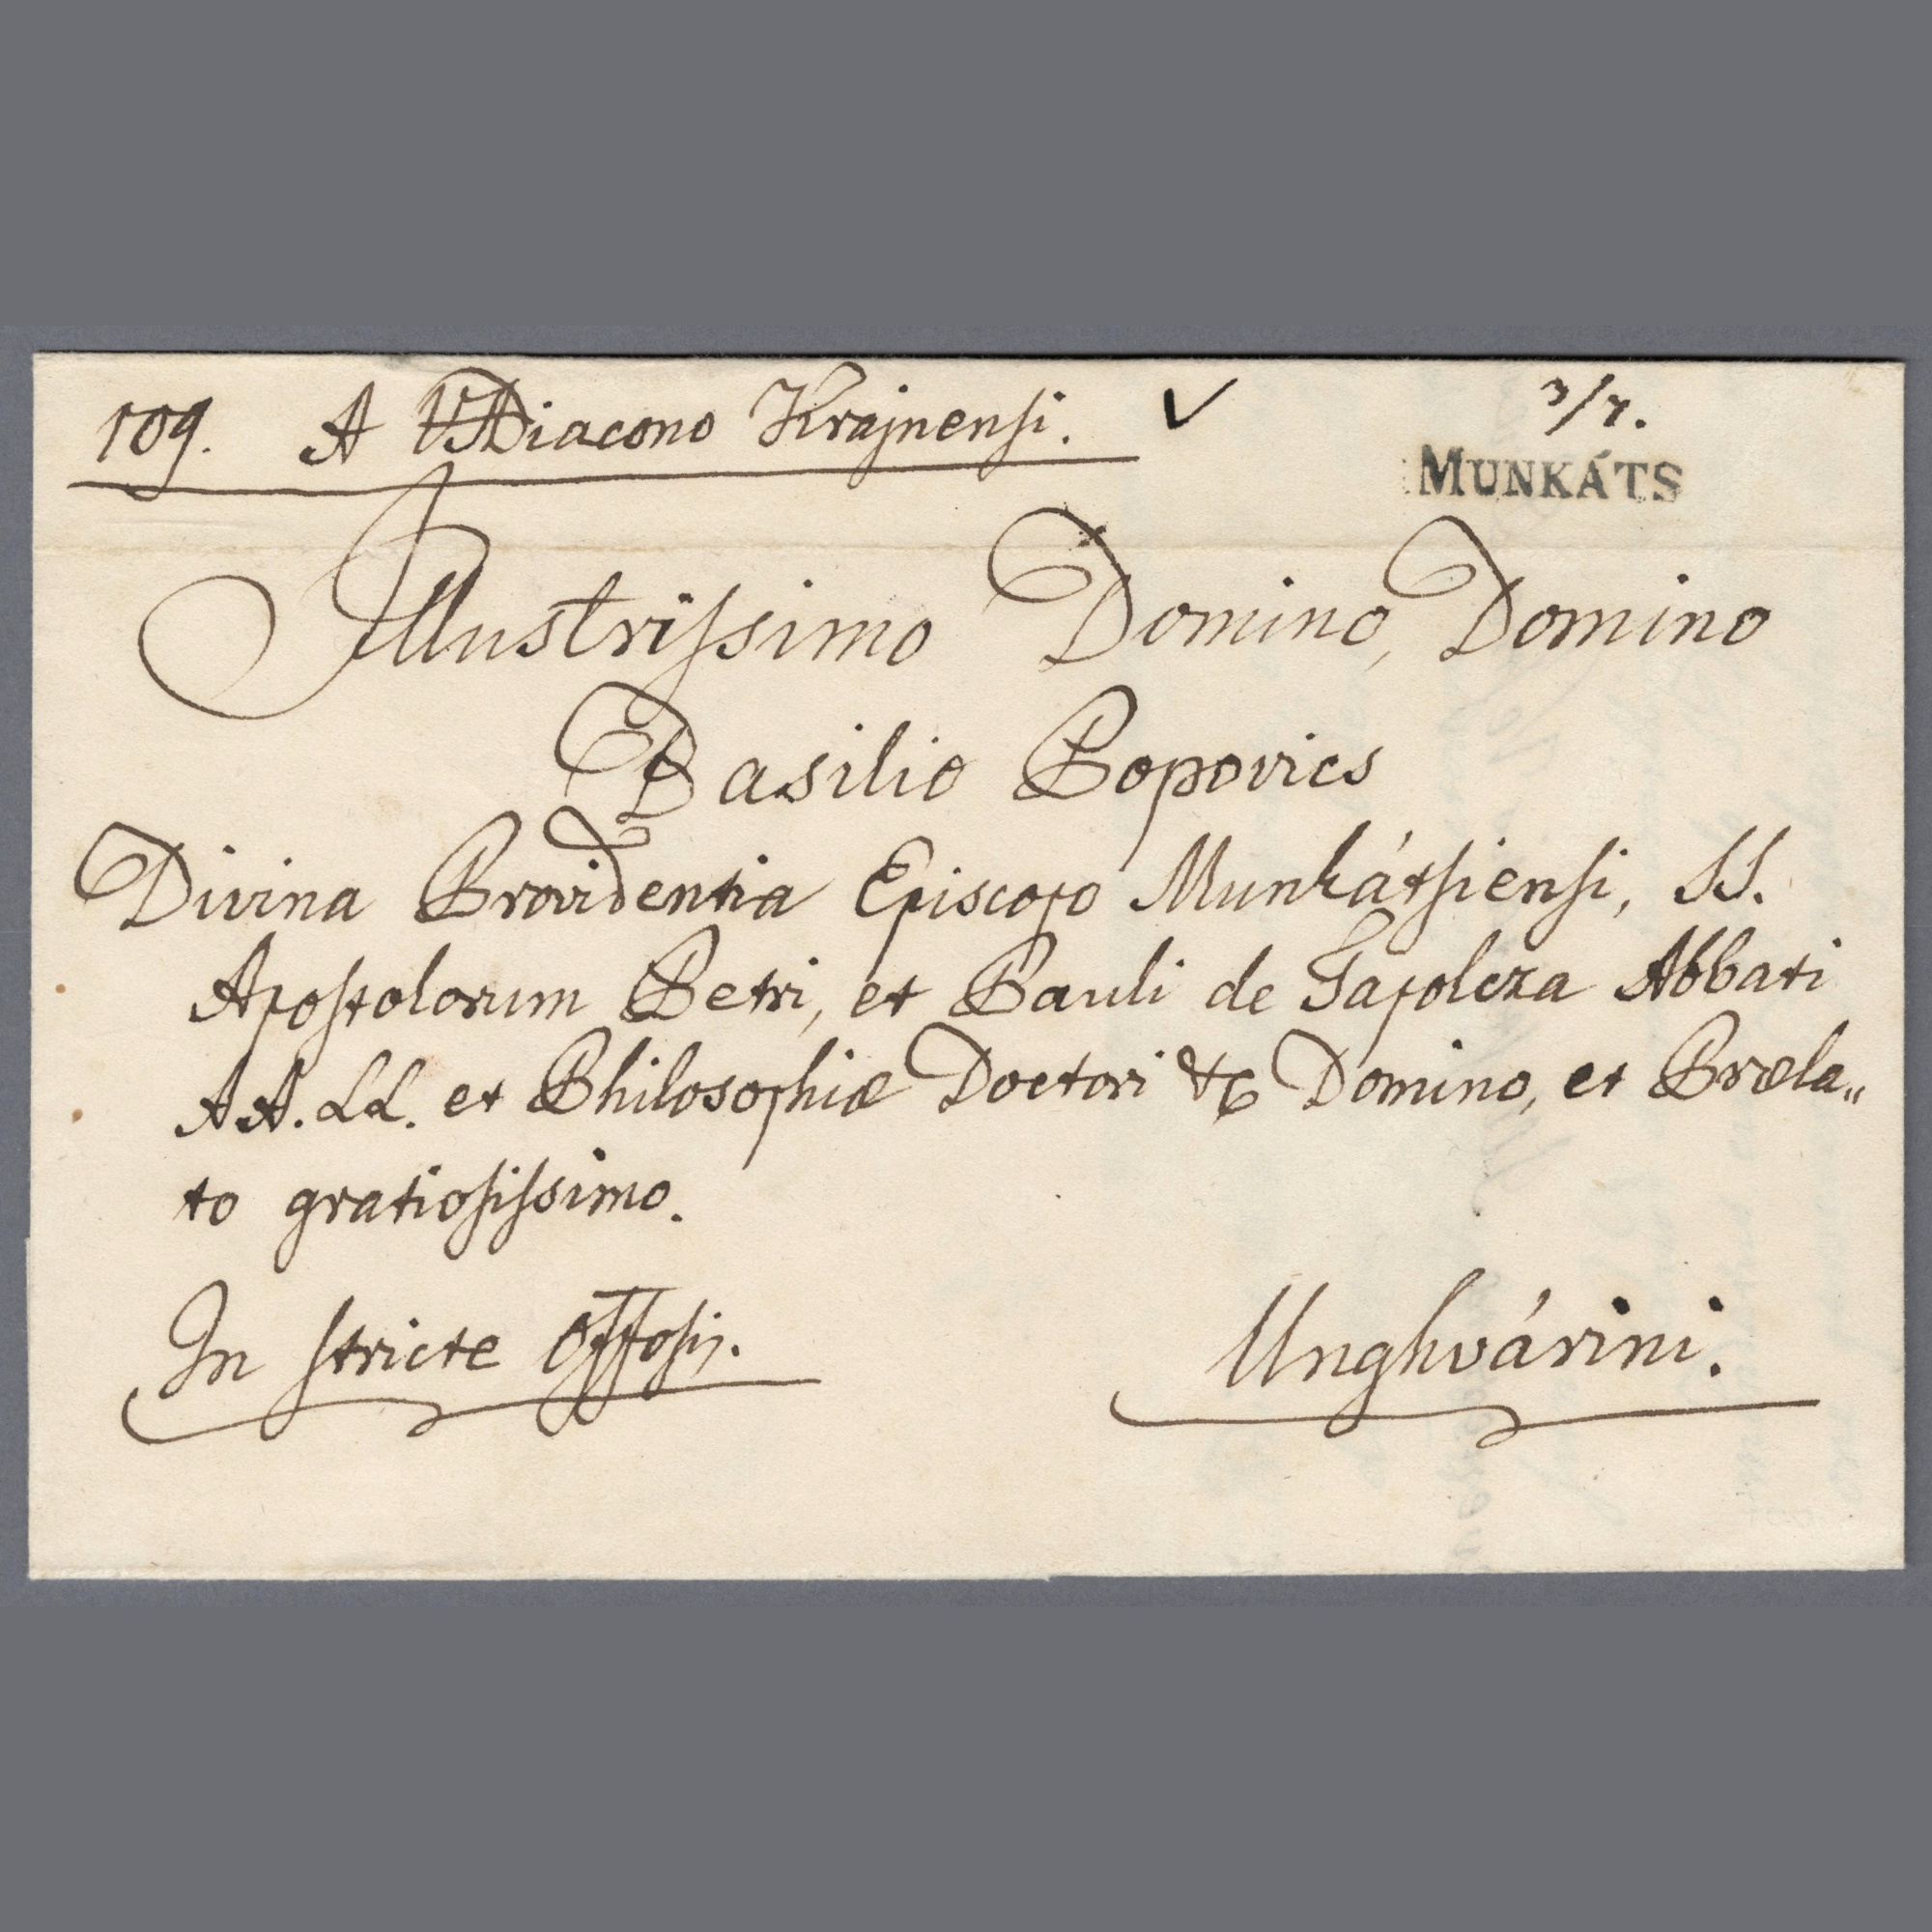 109. A VADiacono Krajnensi. 3/7.
MUNKÁTS
Illustrissimo Domino, Domino
Basilio Popovics
Divina Providentia Episcopo Munkátsiensi, SS.
Apostolorum Petri, et Pauli de Tapolcza Abbati
AA. LL. et Philosophiæ Doctori &c Domino, et Præla„
to gratiosissimo.
In stricte Offosis.
Unghvárini.